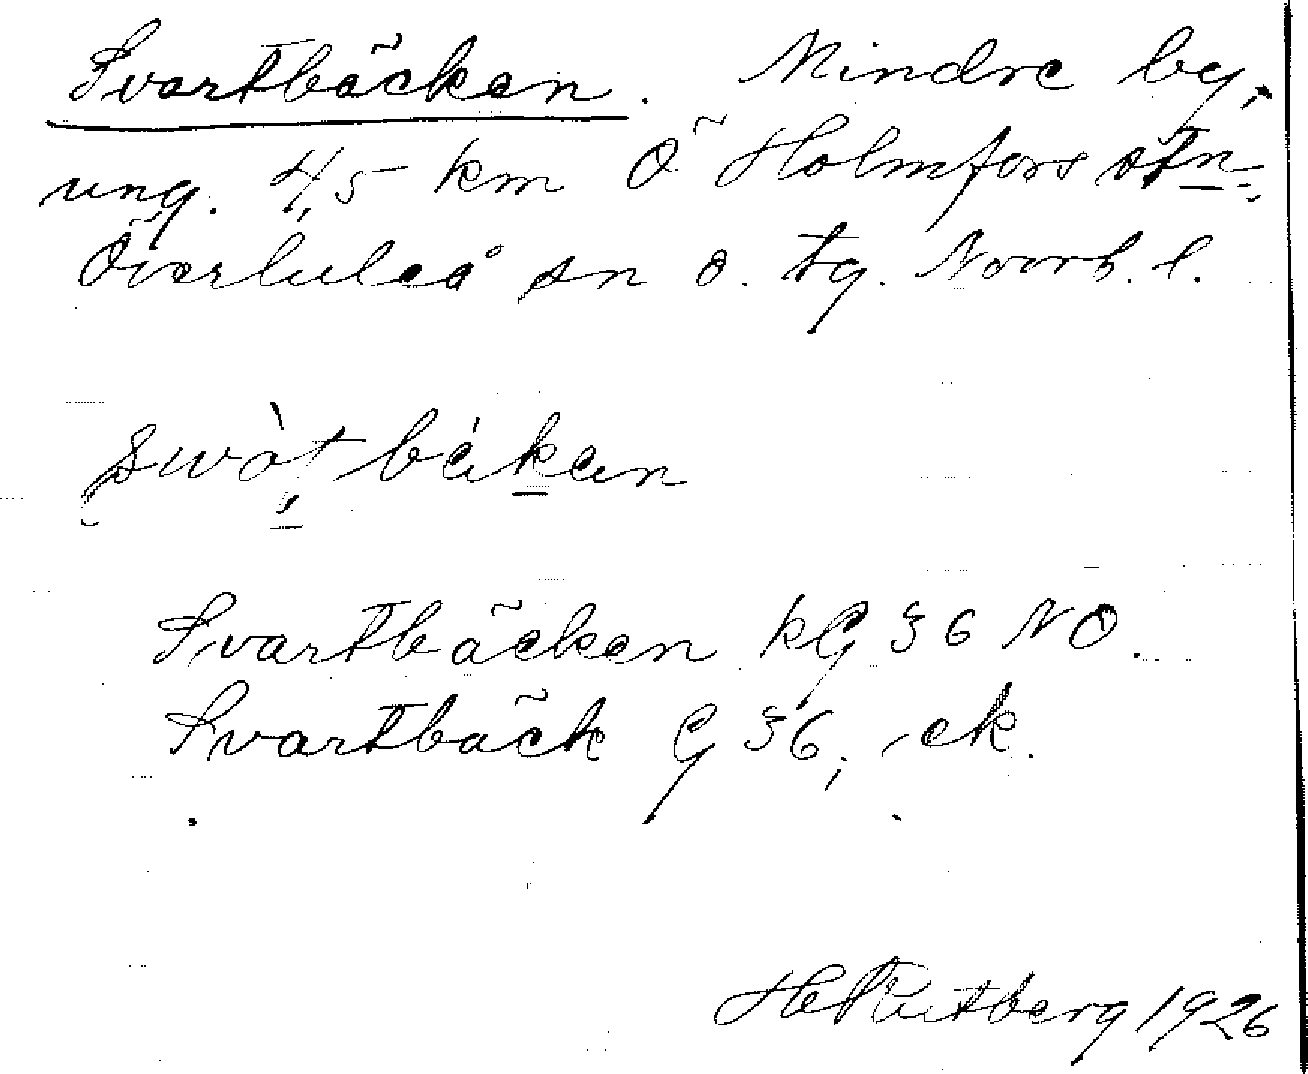 Svartbäcken. Mindre by,
ung. 4,5 km Ö Holmfors stn.
Överluleå sn o. tg. Norrb. l.
swòt bákan
Svartbäcken kG 36 NO.
Svartbäck G 36, -ck.
1926